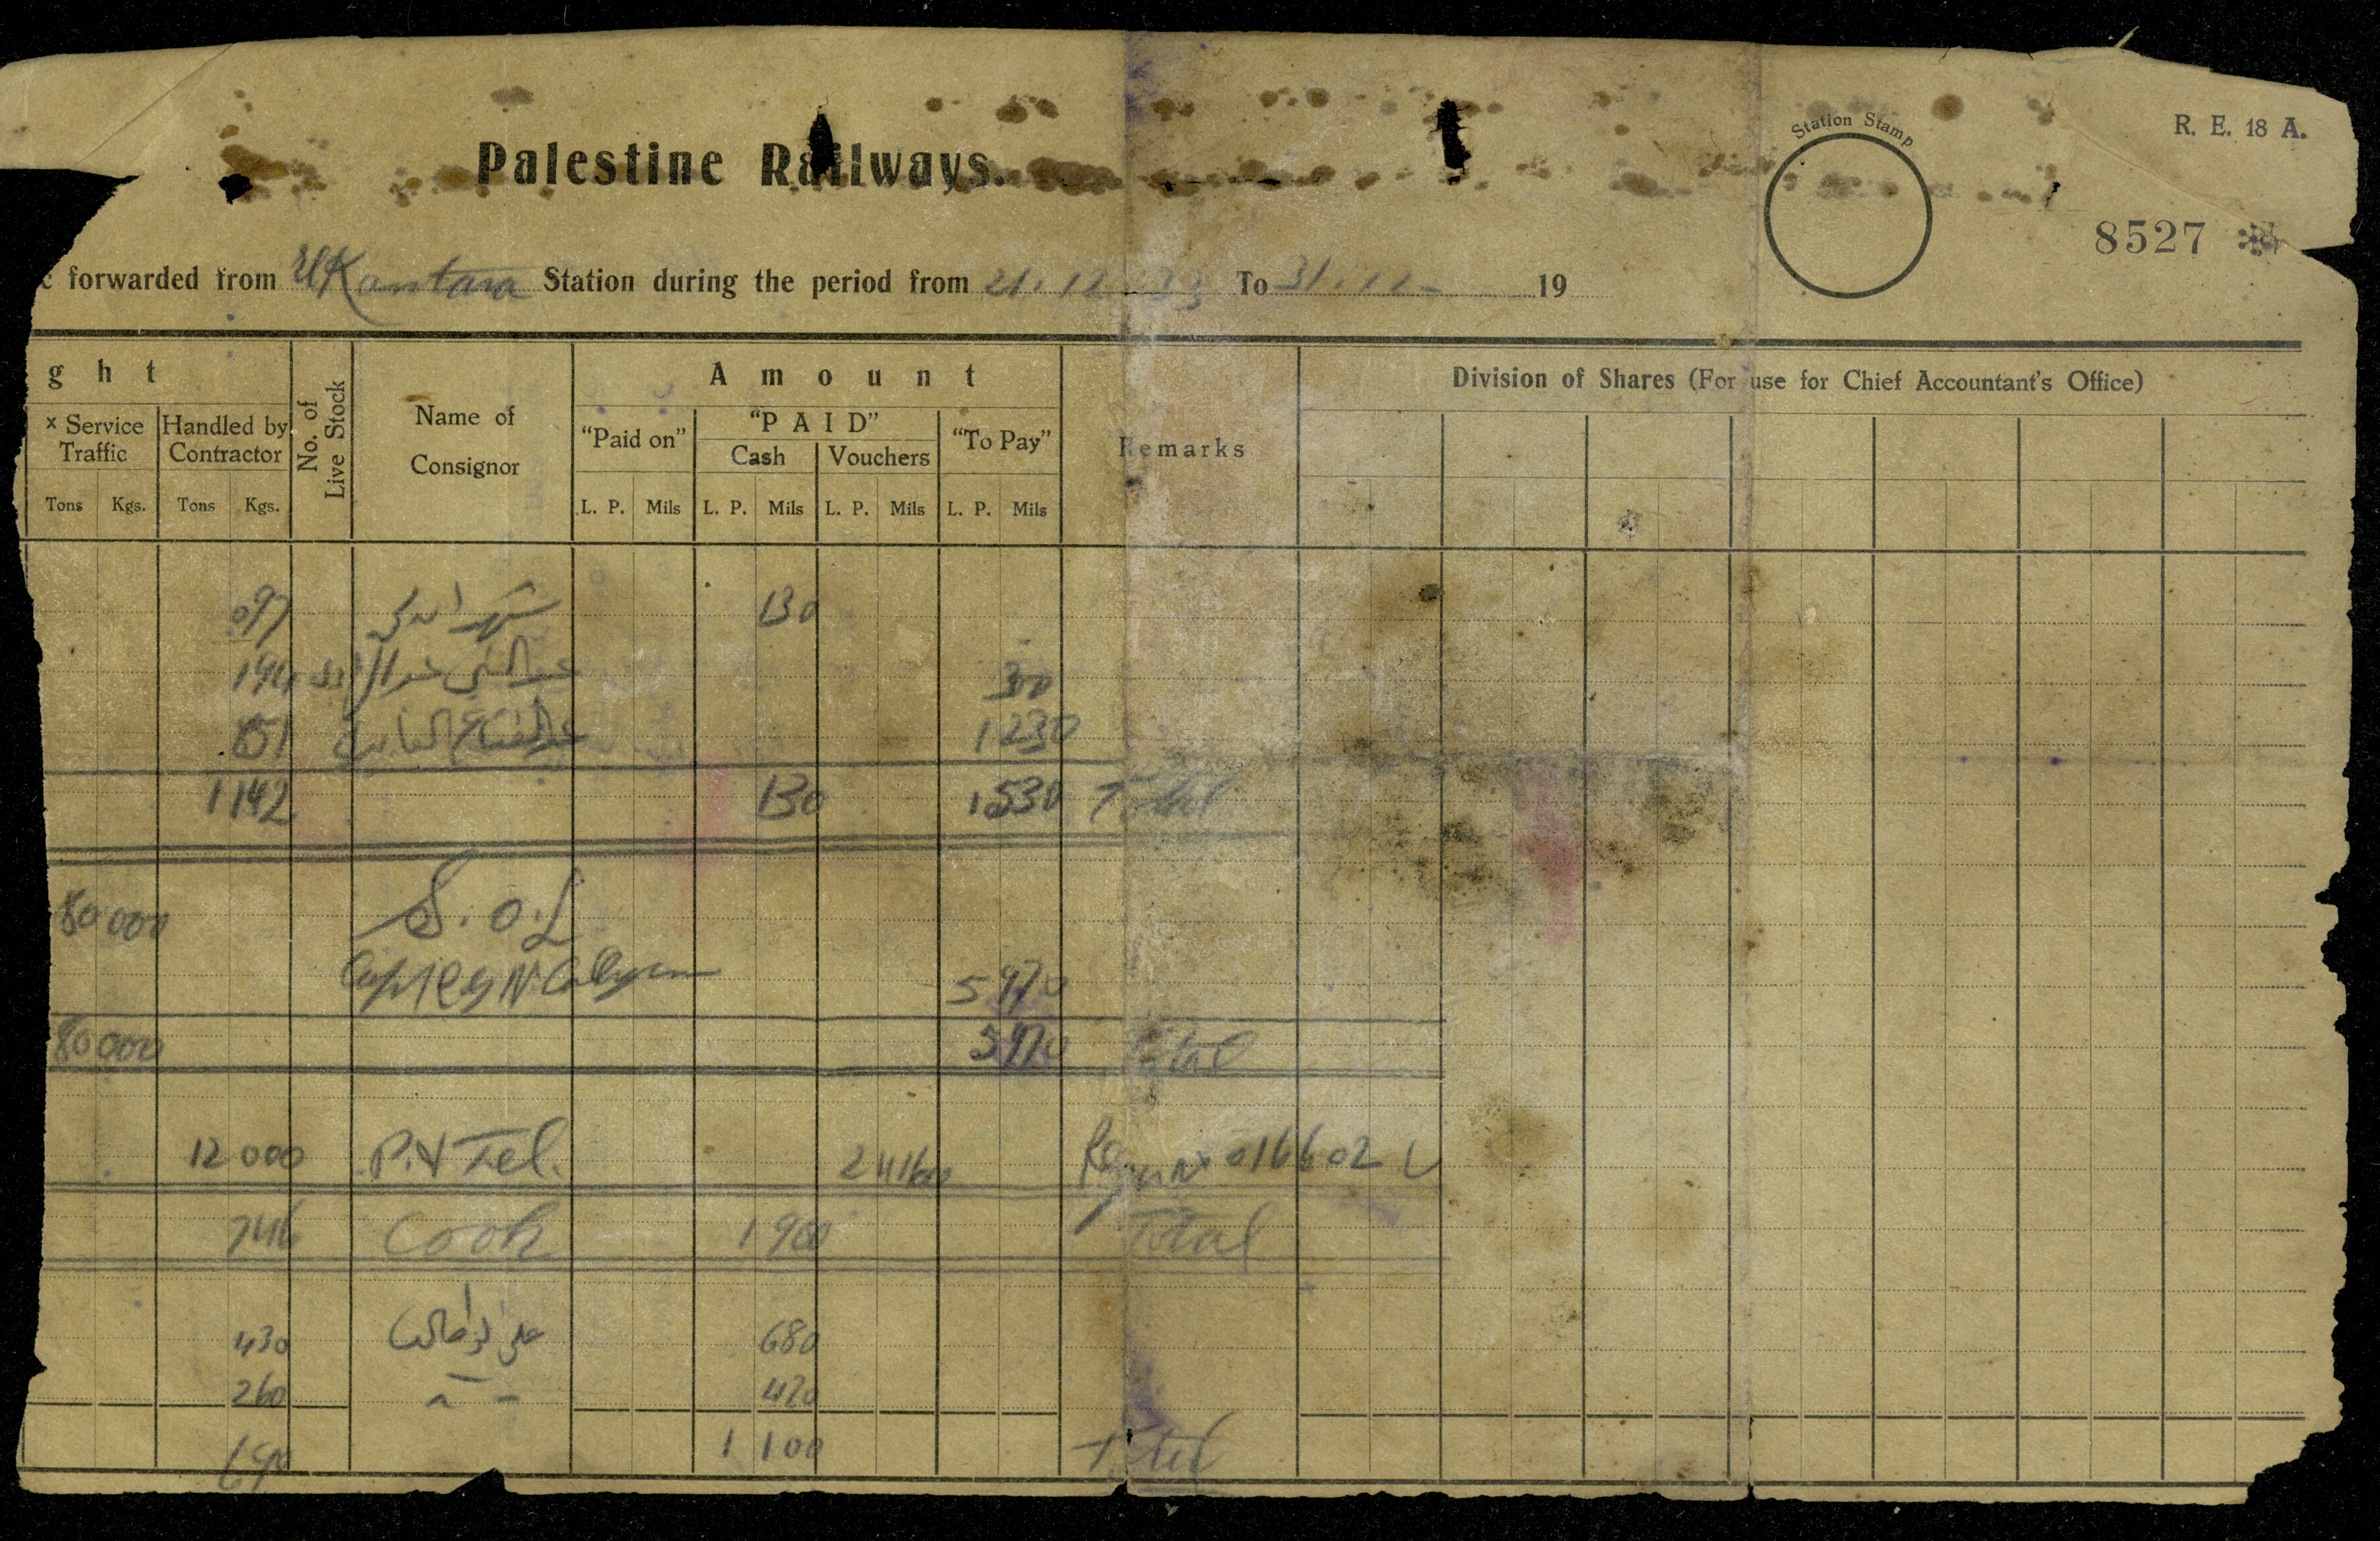 R. E. 18 A.
Station Stamp
Palestine Railways.
8527
forwarded from El Kantara Station during the period from 21.12.33 To 31.12- 19
ght
Amount
Division of Shares (For use for Chief Accountant's Office)
x Service Traffic
Handled by Contractor
No. of Live Stock
Name of Consignor
"Paid on"
"PAID"
Cash
Vouchers
"To Pay"
Remarks
Tons Kgs. Tons Kgs. L. P. Mils L. P. Mils L. P. Mils L. P. Mils
097 130
194 300
851 عبد الفتاح 1230
1142 130 1.530 Total
80 000 S.O.L
5 970
80 000 5970 Total
12 000 P. & Tel. 24160 016602
746 Cook 1 960 Total
430 علي 680
260 420
690 1 100 Total